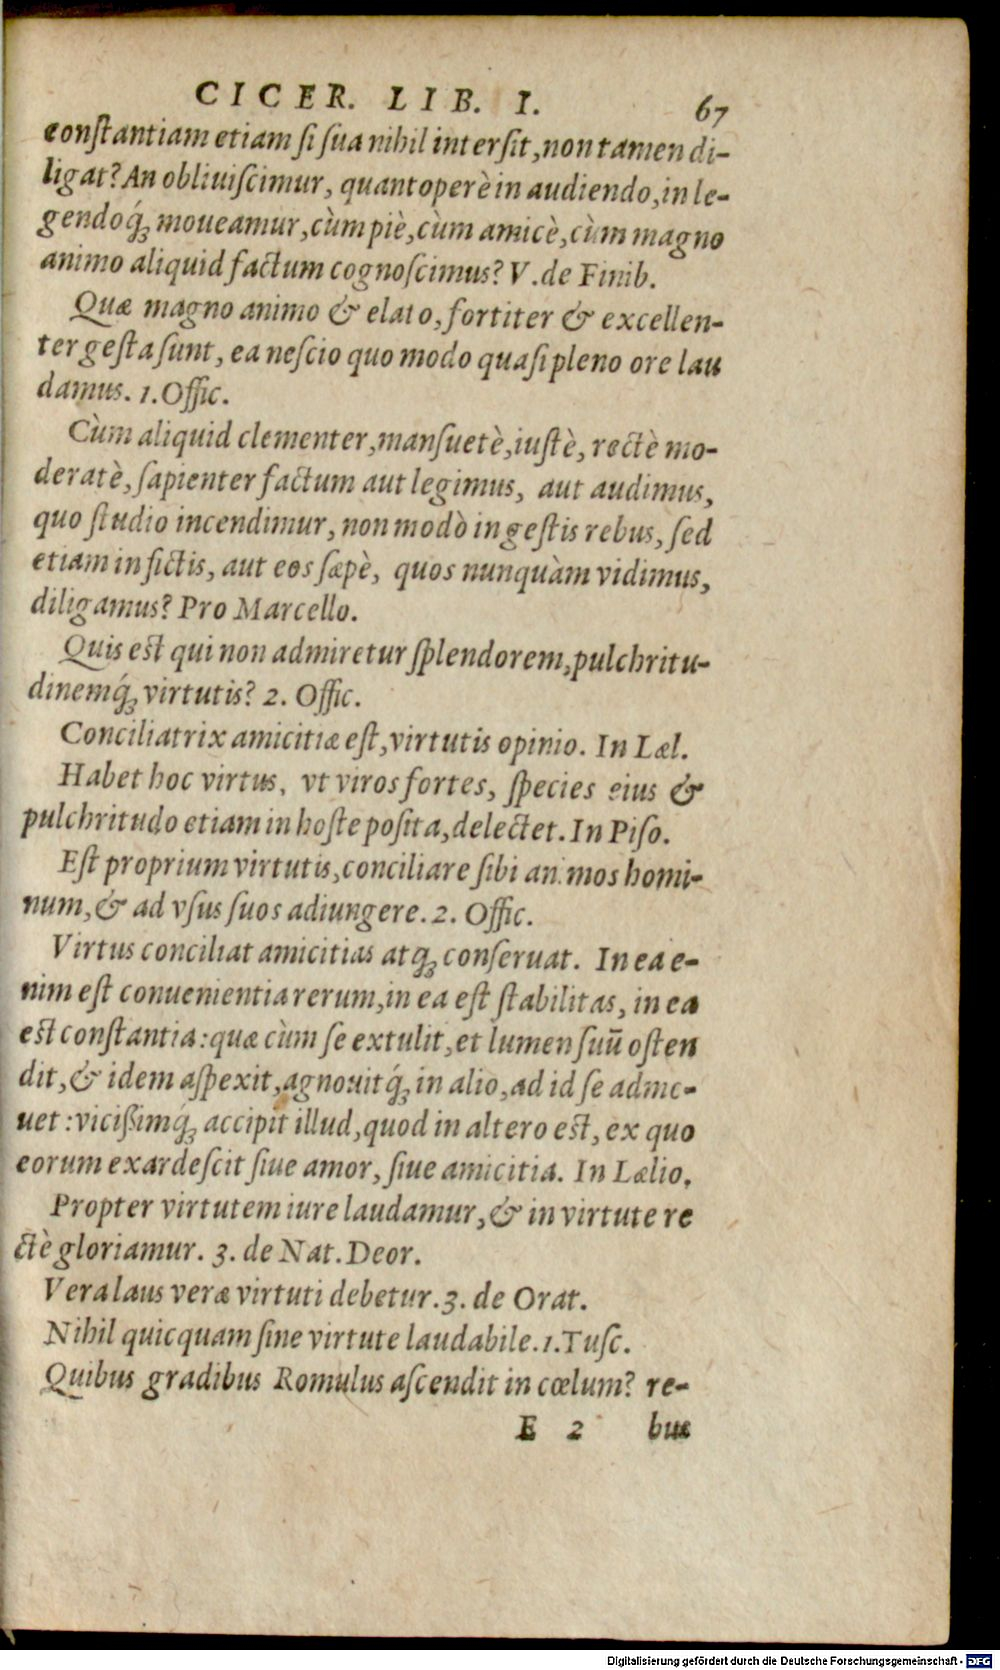 CICER. LIB. I. 67
conſtantiam etiam ſi ſua nihil interſit, non tamen di-
ligat? An obliuiſcimur, quantoperè in audiendo, in le-
gendoq́ꝫ moueamur, cùm piè, cùm amicè, cùm magno
animo aliquid factum cognoſcimus? V. de Finib.
Quæ magno animo & elato, fortiter & excellen-
ter geſta ſunt, ea neſcio quo modo quaſi pleno ore lau
damus. 1. Offic.
Cùm aliquid clementer, manſuetè, iuſtè, rectè mo-
deratè, ſapienter factum aut legimus, aut audimus,
quo ſtudio incendimur, non modò in geſtis rebus, ſed
etiam in fictis, aut eos ſæpè, quos nunquàm vidimus,
diligamus? Pro Marcello.
Quis eſt qui non admiretur ſplendorem, pulchritu-
dinemq́ꝫ virtutis? 2. Offic.
Conciliatrix amicitiæ eſt, virtutis opinio. In Læl.
Habet hoc virtus, vt viros fortes, ſpecies eius &
pulchritudo etiam in hoſte poſita, delectet. In Piſo.
Eſt proprium virtutis, conciliare ſibi animos homi-
num, & ad vſus ſuos adiungere. 2. Offic.
Virtus conciliat amicitias atqꝫ conſeruat. In ea e-
nim eſt conuenientia rerum, in ea eſt ſtabilitas, in ea
eſt conſtantia: quæ cùm ſe extulit, et lumen ſuū oſten
dit, & idem aſpexit, agnouitq́ꝫ in alio, ad id ſe admo-
uet: viciſſimq́ꝫ accipit illud, quod in altero eſt, ex quo
eorum exardeſcit ſiue amor, ſiue amicitia. In Lælio.
Propter virtutem iure laudamur, & in virtute re
ctè gloriamur. 3. de Nat. Deor.
Vera laus veræ virtuti debetur. 3. de Orat.
Nihil quicquam ſine virtute laudabile. 1. Tuſc.
Quibus gradibus Romulus aſcendit in cœlum? re-
E 2 bus
Digitalisierung gefördert durch die Deutsche Forschungsgemeinschaft - DFG